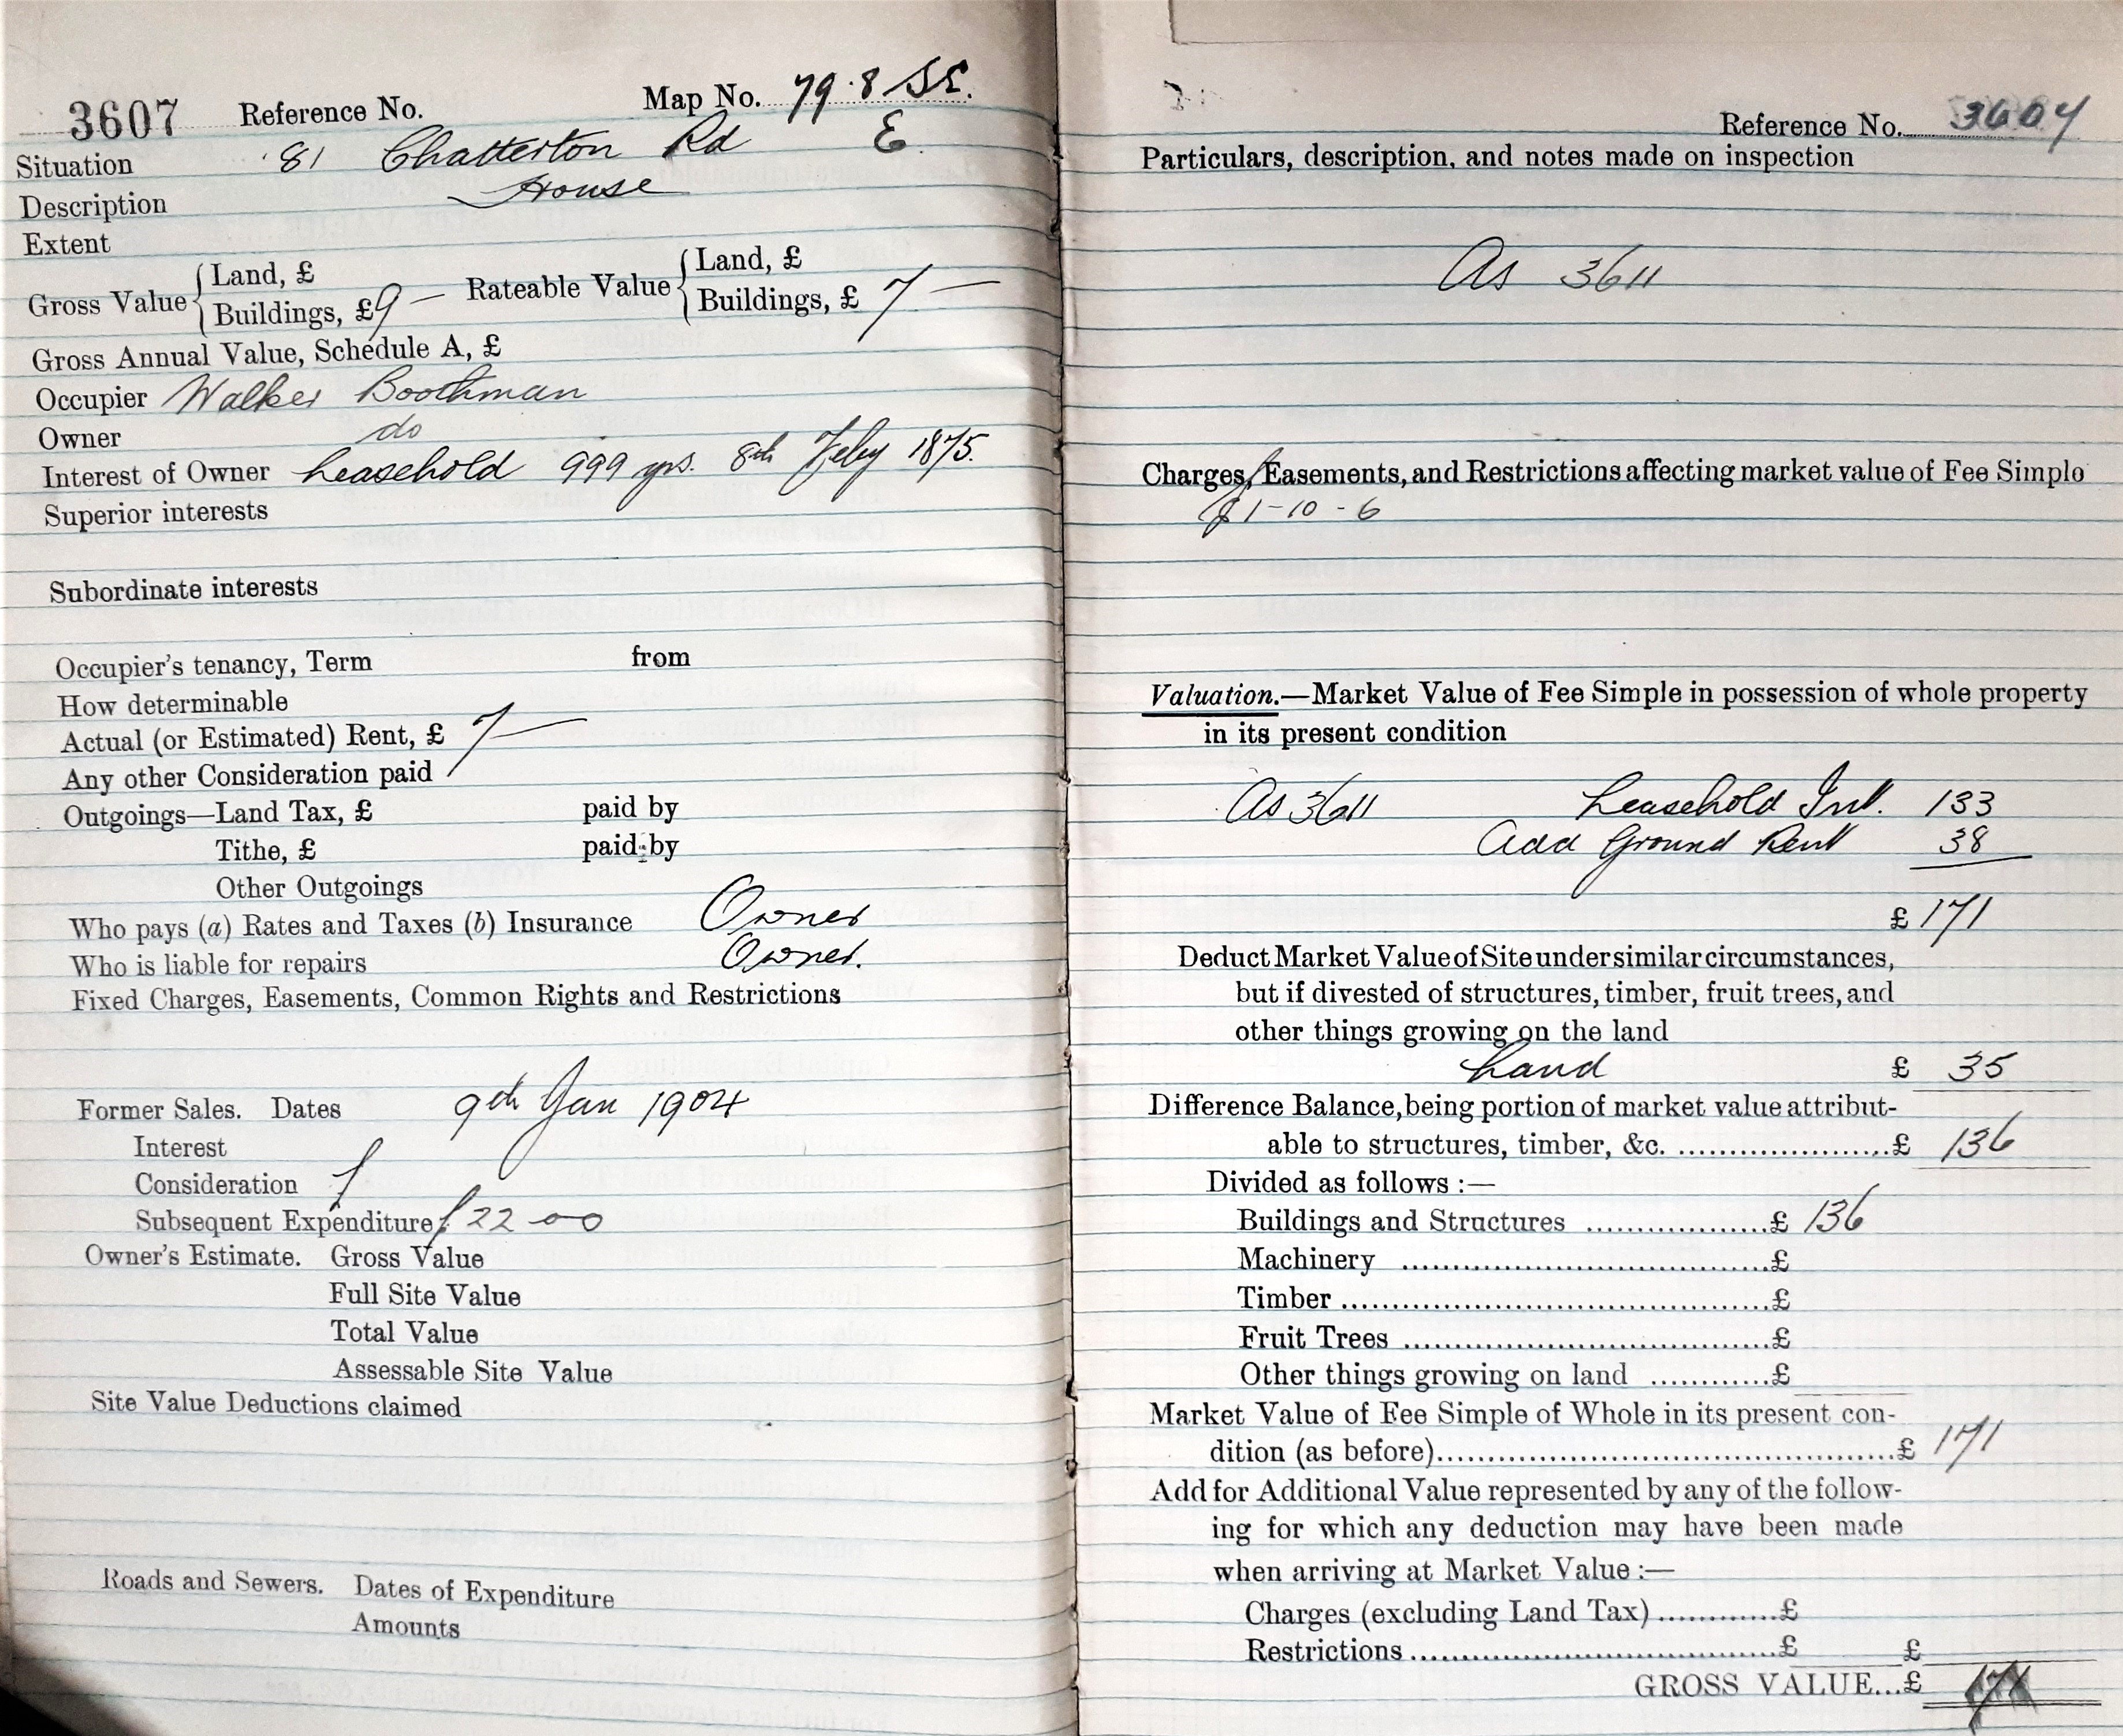 3607 Reference No. Map No. 79.8 SE.
Situation 81 Chatterton Rd E
Description House
Extent
Gross Value { Land, £ Rateable Value { Land, £
Buildings, £ 9 — Buildings, £ 7 —
Gross Annual Value, Schedule A, £
Occupier Walker Boothman
Owner do
Interest of Owner Leasehold 999 yrs. 8th Feby 1875.
Superior interests
Subordinate interests
Occupier's tenancy, Term from
How determinable
Actual (or Estimated) Rent, £ 7 —
Any other Consideration paid
Outgoings—Land Tax, £ paid by
Tithe, £ paid by
Other Outgoings
Who pays (a) Rates and Taxes (b) Insurance Owner
Who is liable for repairs Owner.
Fixed Charges, Easements, Common Rights and Restrictions
Former Sales. Dates 9th Jan 1904
Interest
Consideration
Subsequent Expenditure
Owner's Estimate. Gross Value
Full Site Value
Total Value
Assessable Site Value
Site Value Deductions claimed
Roads and Sewers. Dates of Expenditure
Amounts
Reference No.
Particulars, description, and notes made on inspection
As 3611
Charges, Easements, and Restrictions affecting market value of Fee Simple
£1-10-6
Valuation.—Market Value of Fee Simple in possession of whole property
in its present condition
As 3611 Leasehold Int. 133
Add Ground Rent 38
£ 171
Deduct Market Value of Site under similar circumstances,
but if divested of structures, timber, fruit trees, and
other things growing on the land
Land £ 35
Difference Balance, being portion of market value attribut-
able to structures, timber, &c. ......................£ 136
Divided as follows :—
Buildings and Structures ...................£ 136
Machinery .....................................£
Timber ...........................................£
Fruit Trees .....................................£
Other things growing on land ............£
Market Value of Fee Simple of Whole in its present con-
dition (as before)................................................£ 171
Add for Additional Value represented by any of the follow-
ing for which any deduction may have been made
when arriving at Market Value :—
Charges (excluding Land Tax) ............£
Restrictions ......................................£ £
GROSS VALUE...£ 171